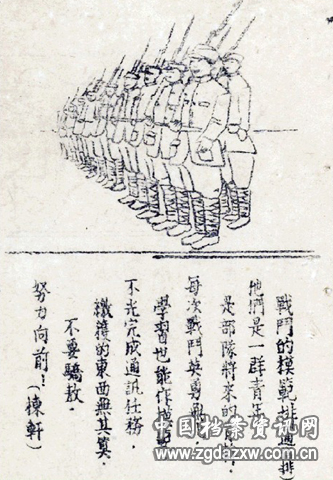 戰鬥的模範排（通訊排）
他們是一群青年
是部隊將來的
每次戰鬥英勇
學習也能作模範
不光完成通訊任務．
繳獲的東西無其算．
不要驕敖．
努力向前！（棟軒）
中国档案资讯网
www.zgdazxw.com.cn